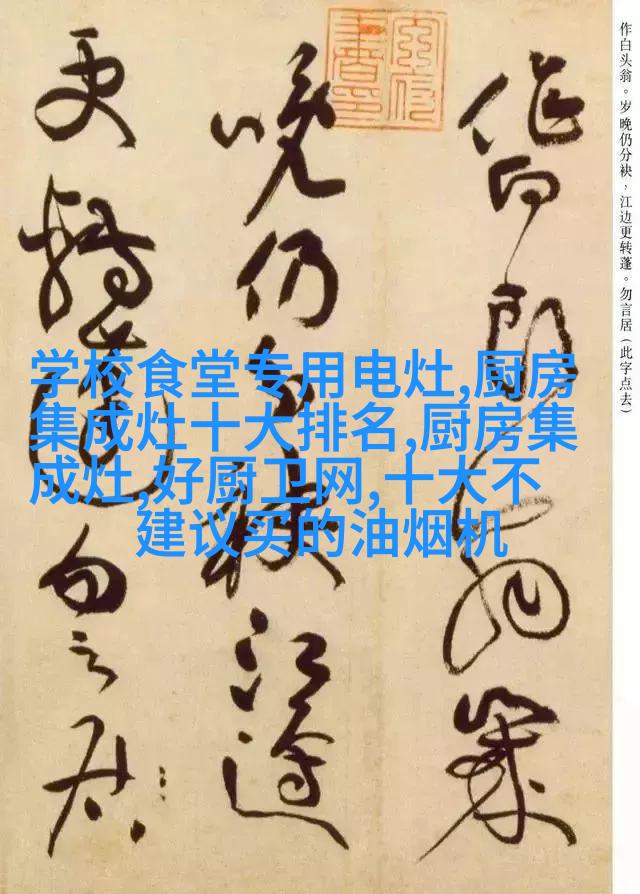 作白头翁。岁晚仍分袂，江边更转蓬。勿言居（此字点去）
作白頭翁歲
晚仍分袂江邊
更轉蓬勿言居
学校食堂专用电灶,厨房
集成灶十大排名,厨房集
成灶,好厨卫网,十大不
建议买的油烟机